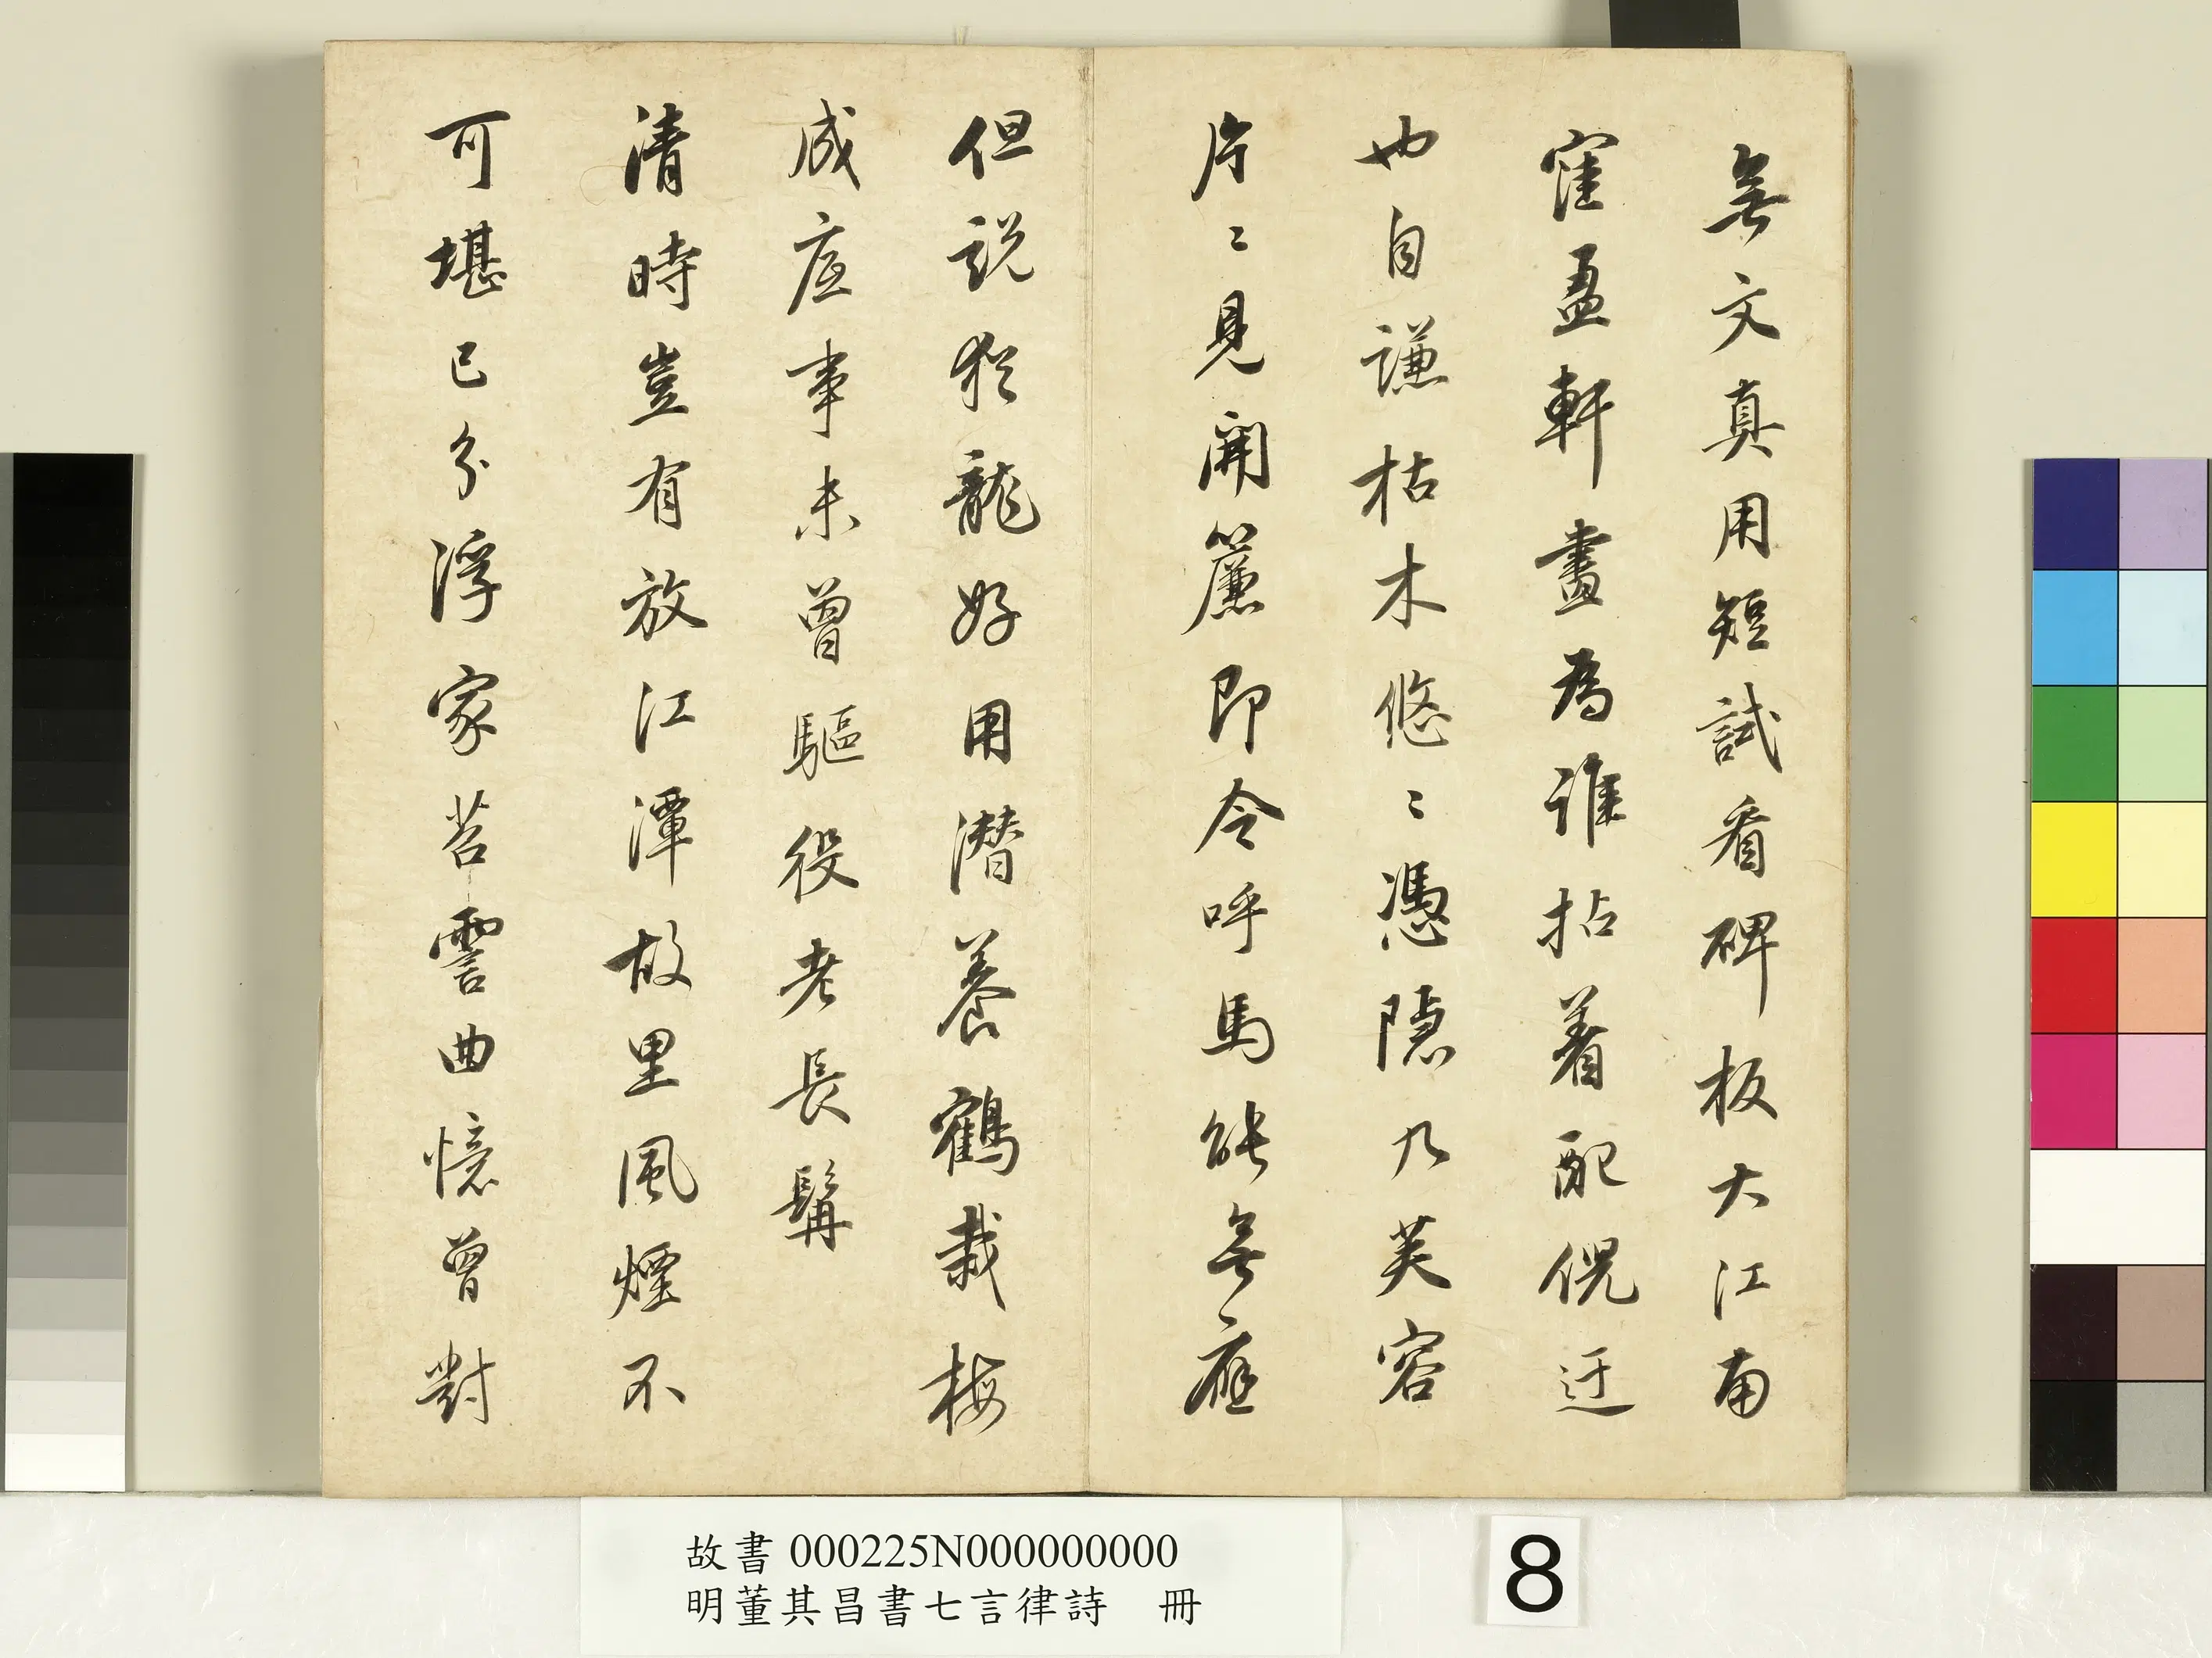 無文真用短試看碑板大江南
窪盈軒畫為誰拈着配倪迂
也自謙枯木悠〻憑隱几芙容
片〻見開簾即今呼馬能無應
但說猶龍好用潛養鶴栽梅
成底事未曾驅役老長髯
清時豈有放江潭故里風煙不
可堪已分浮家苕霅曲憶曾對
故書 000225N000000000
明董其昌書七言律詩 冊
8